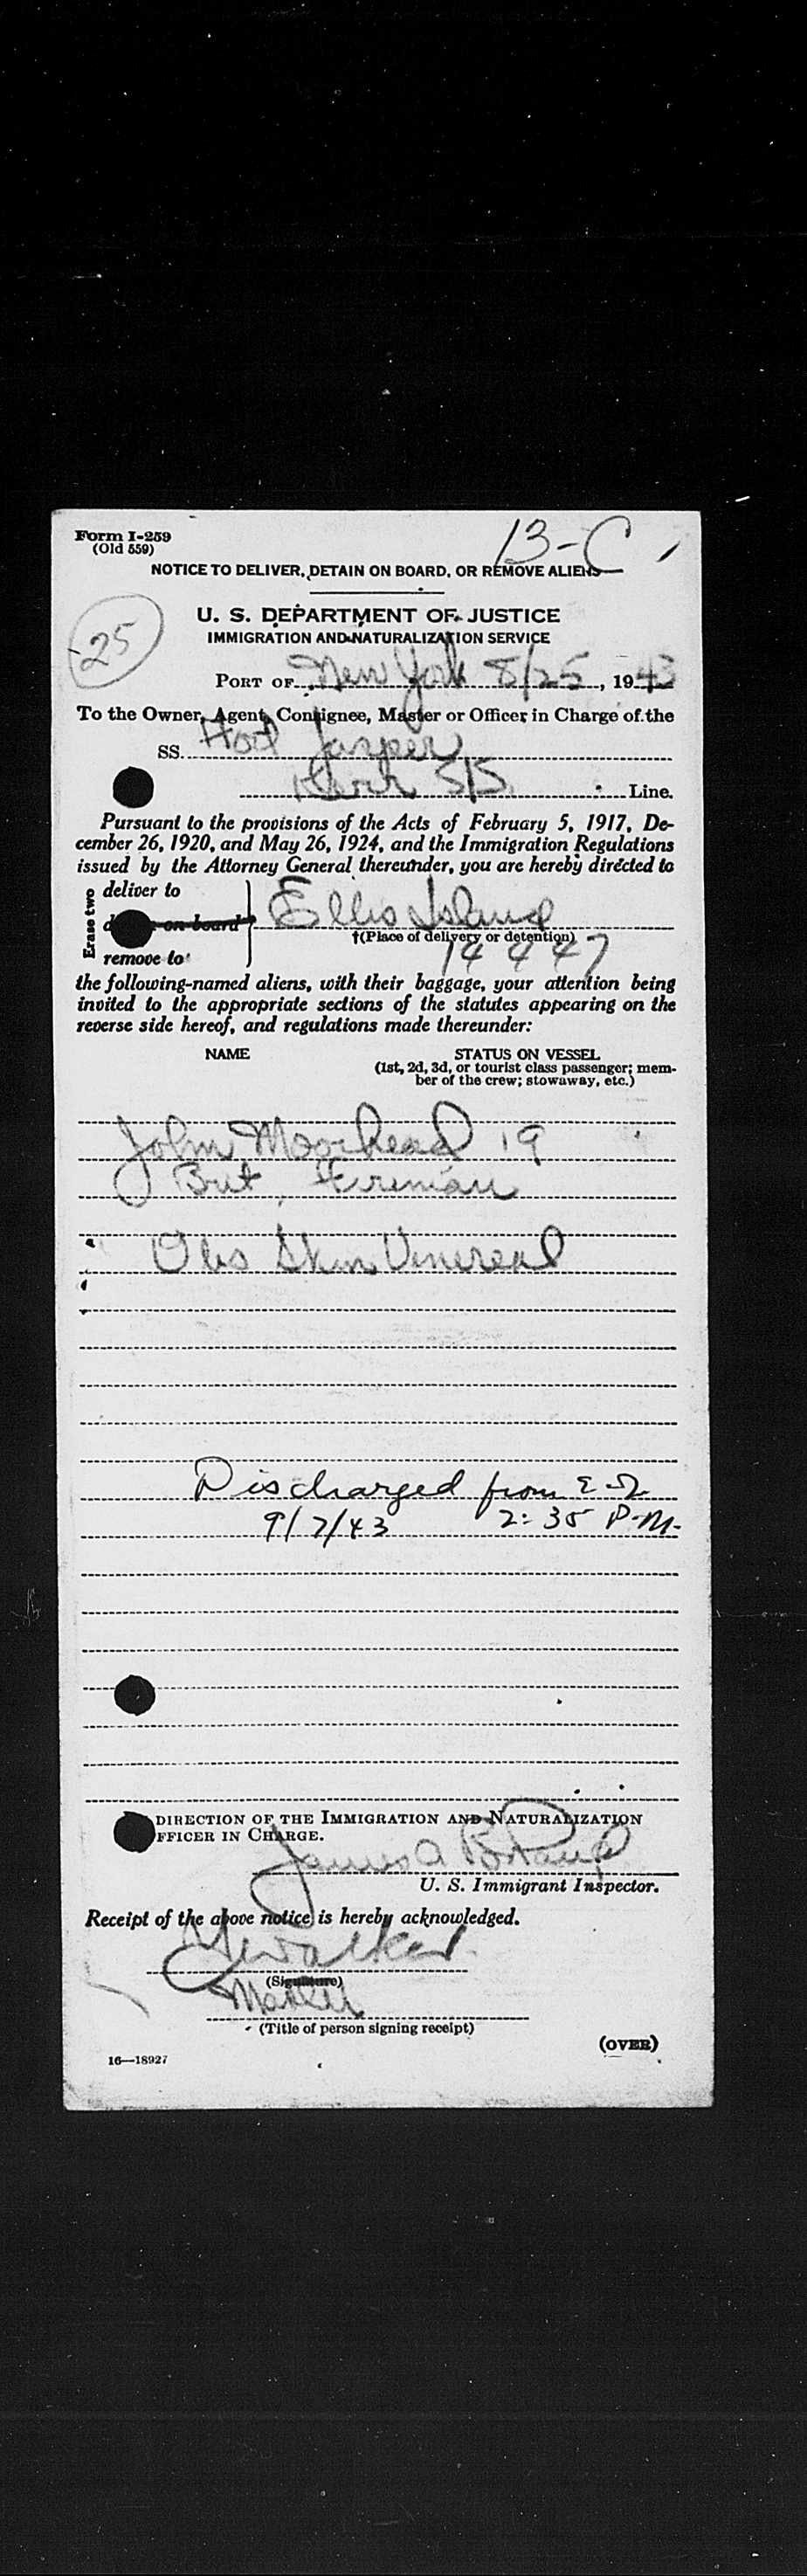 Form I-259
(Old 559)
13-C
NOTICE TO DELIVER, DETAIN ON BOARD, OR REMOVE ALIENS
25
U. S. DEPARTMENT OF JUSTICE
IMMIGRATION AND NATURALIZATION SERVICE
PORT OF New York 8/25, 1943
To the Owner, Agent, Consignee, Master or Officer in Charge of the
SS. Fort Jasper
Kerr S/S Line.
Pursuant to the provisions of the Acts of February 5, 1917, De-
cember 26, 1920, and May 26, 1924, and the Immigration Regulations
issued by the Attorney General thereunder, you are hereby directed to
Erase two
deliver to
on board
remove to
Ellis Island
†(Place of delivery or detention)
14447
the following-named aliens, with their baggage, your attention being
invited to the appropriate sections of the statutes appearing on the
reverse side hereof, and regulations made thereunder:
NAME STATUS ON VESSEL
(1st, 2d, 3d, or tourist class passenger; mem-
ber of the crew; stowaway, etc.)
John Moorhead 19
Brit, Fireman
Obs Skin Venereal
Discharged from E-I
9/7/43 2:35 P.M.
DIRECTION OF THE IMMIGRATION AND NATURALIZATION
FFICER IN CHARGE.
James A
U. S. Immigrant Inspector.
Receipt of the above notice is hereby acknowledged.
Walker
(Signature)
Master
(Title of person signing receipt)
(OVER)
16—18927